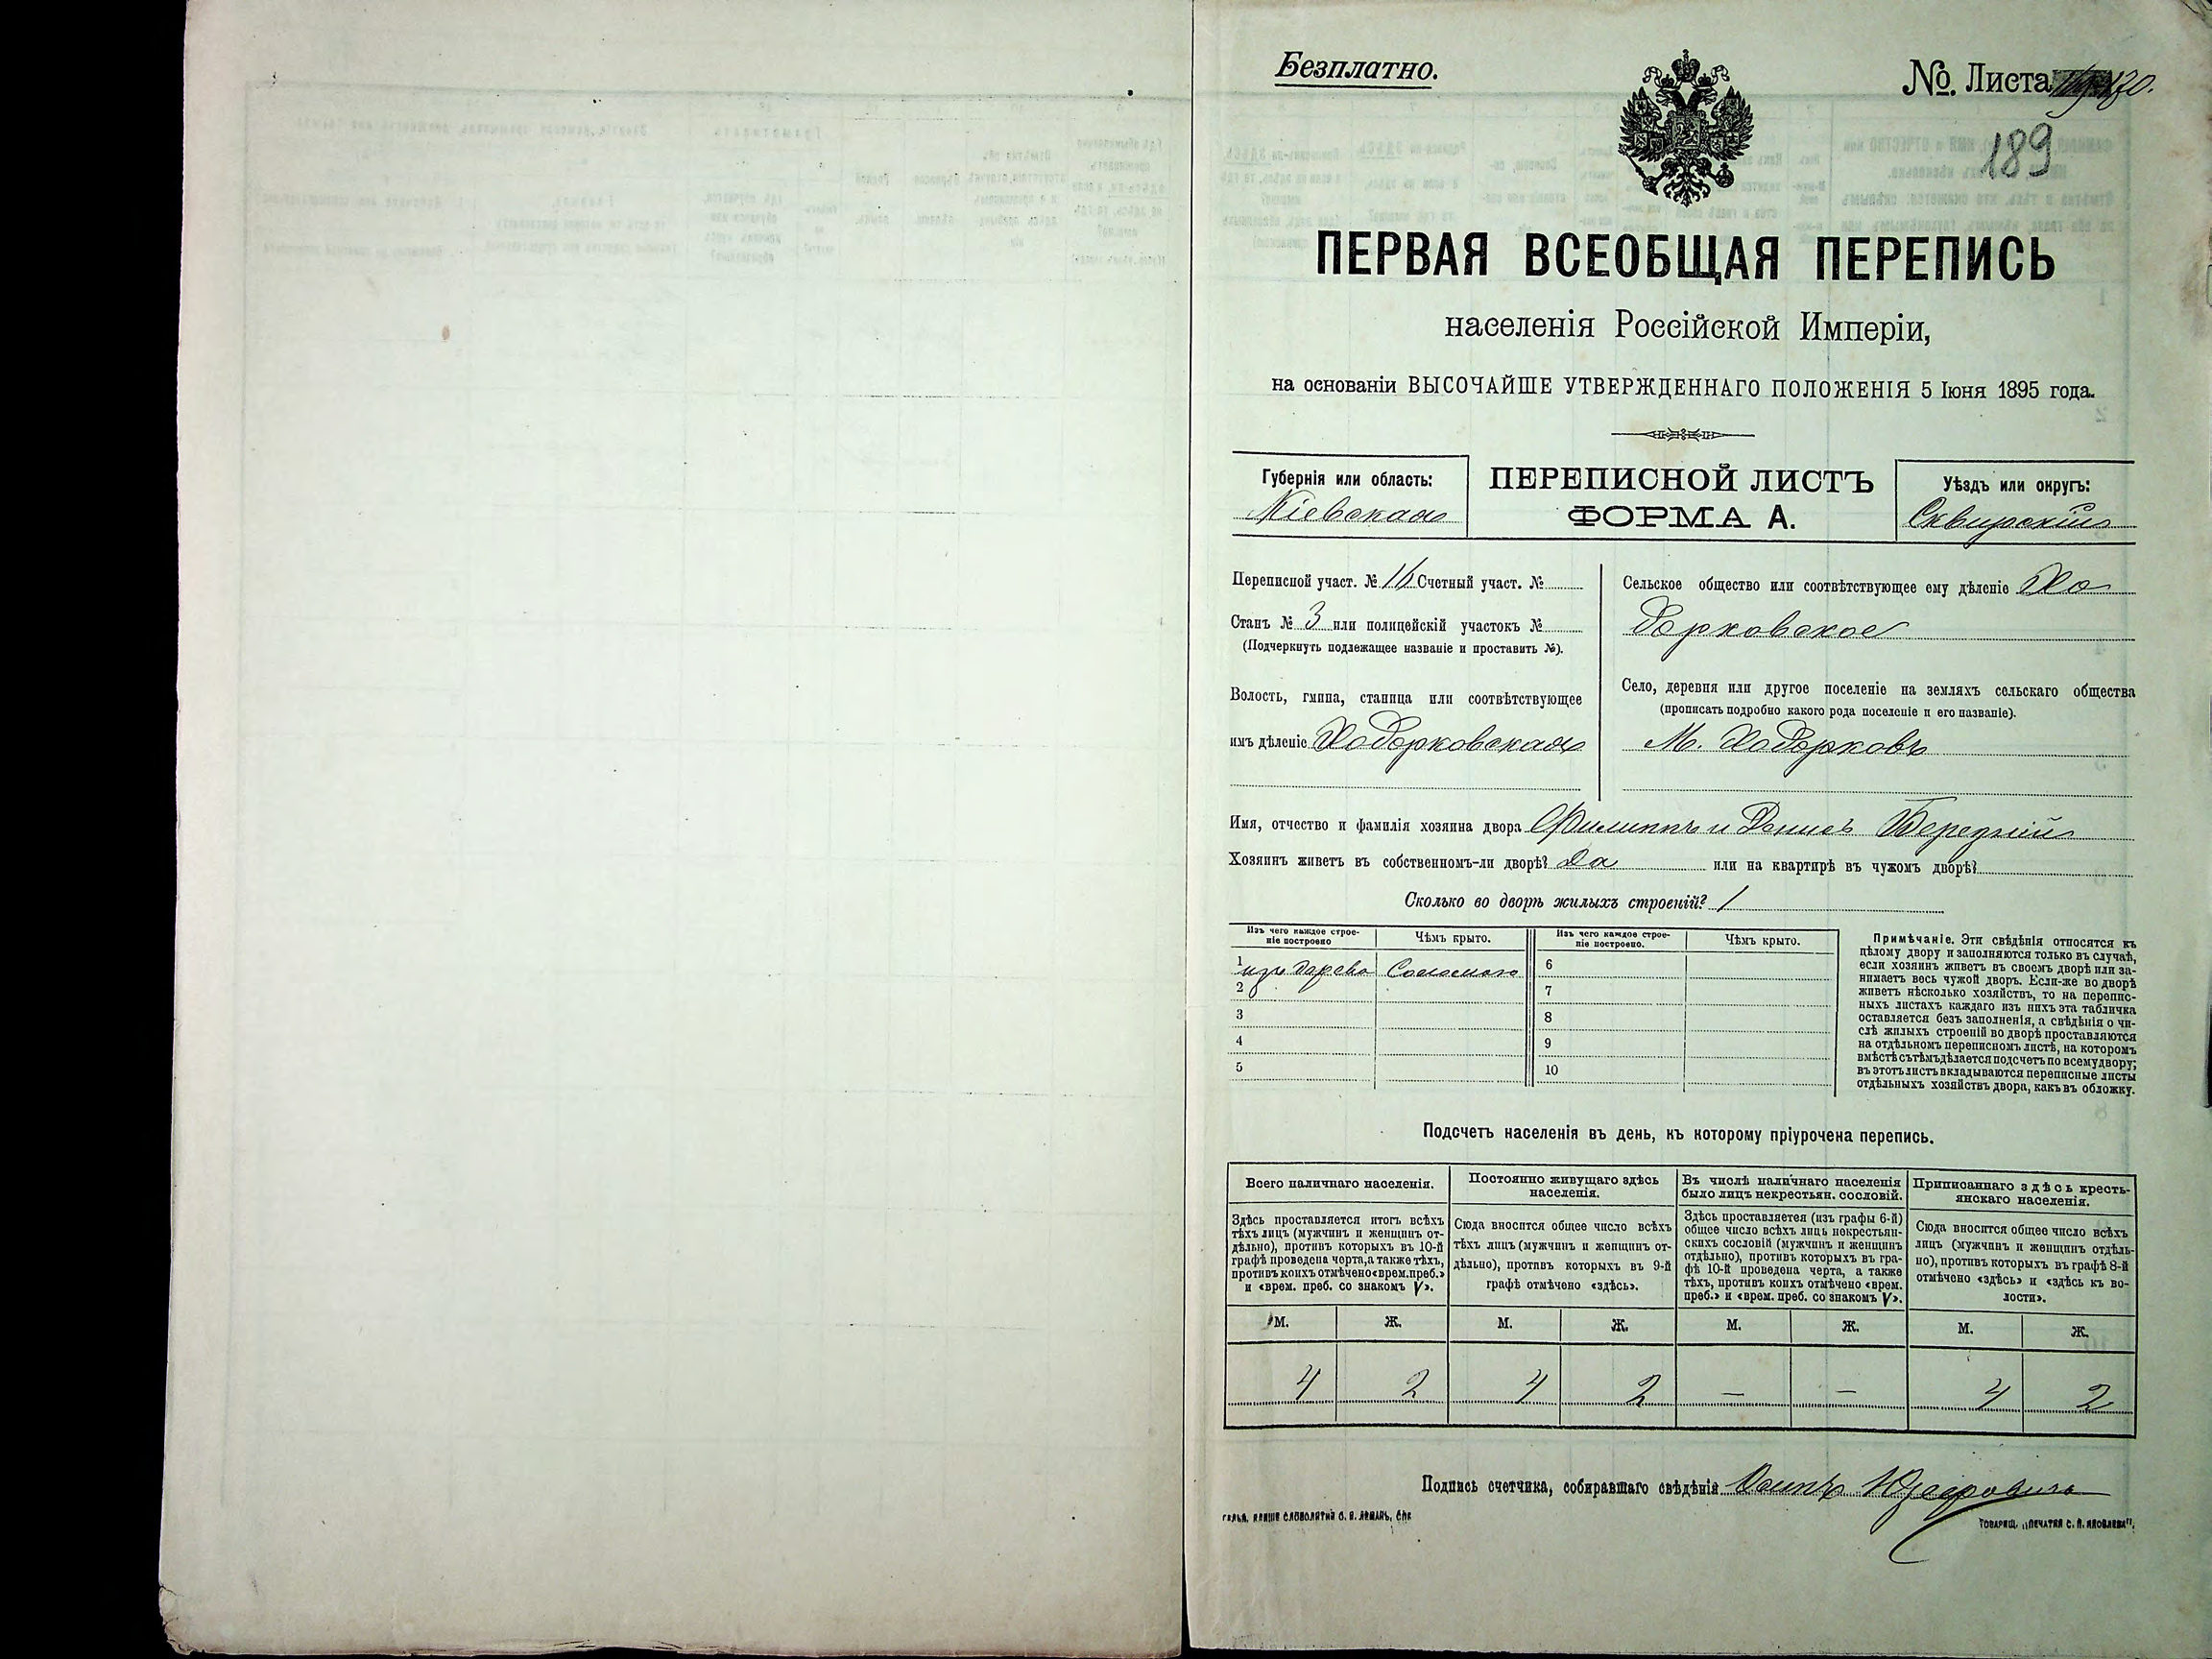 Безплатно.
№ Листа
189
ПЕРВАЯ ВСЕОБЩАЯ ПЕРЕПИСЬ
населенія Россійской Имперіи,
на основаніи ВЫСОЧАЙШЕ УТВЕРЖДЕННАГО ПОЛОЖЕНІЯ 5 Іюня 1895 года.
Губернія или область:
Кіевская
ПЕРЕПИСНОЙ ЛИСТЪ
ФОРМА А.
Уѣздъ или округъ:
Сквирскій
Переписной участ. № 16 Счетный участ. №
Станъ № 3 или полицейскій участокъ №
(Подчеркнуть подлежащее названіе и проставить №).
Волость, гмина, станица или соотвѣтствующее
имъ дѣленіе Ходорковская
Сельское общество или соотвѣтствующее ему дѣленіе Хо
дорковское
Село, деревня или другое поселеніе на земляхъ сельскаго общества
(прописать подробно какого рода поселеніе и его названіе).
М. Ходорковъ
Имя, отчество и фамилія хозяина двора Филиппъ и Денисъ
Хозяинъ живетъ въ собственномъ-ли дворѣ? Да или на квартирѣ въ чужомъ дворѣ?
Сколько во дворѣ жилыхъ строеній? 1
Изъ чего каждое строе-
ніе построено
Чѣмъ крыто.
Изъ чего каждое строе-
ніе построено.
Чѣмъ крыто.
1 изъ дерева Соломою 6
2 7
3 8
4 9
5 10
Примѣчаніе. Эти свѣдѣнія относятся къ
цѣлому двору и заполняются только въ случаѣ,
если хозяинъ живетъ въ своемъ дворѣ или за-
нимаетъ весь чужой дворъ. Если-же во дворѣ
живетъ нѣсколько хозяйствъ, то на перепис-
ныхъ листахъ каждаго изъ нихъ эта табличка
оставляется безъ заполненія, а свѣдѣнія о чи-
слѣ жилыхъ строеній во дворѣ проставляются
на отдѣльномъ переписномъ листѣ, на которомъ
вмѣстѣ съ тѣмъ дѣлается подсчетъ по всему двору;
въ этотъ листъ вкладываются переписные листы
отдѣльныхъ хозяйствъ двора, какъ въ обложку.
Подсчетъ населенія въ день, къ которому пріурочена перепись.
Всего наличнаго населенія.
Здѣсь проставляется итогъ всѣхъ
тѣхъ лицъ (мужчинъ и женщинъ от-
дѣльно), противъ которыхъ въ 10-й
графѣ проведена черта, а также тѣхъ,
противъ коихъ отмѣчено «врем. преб.»
и «врем. преб. со знакомъ V».
Постоянно живущаго здѣсь
населенія.
Сюда вносится общее число всѣхъ
тѣхъ лицъ (мужчинъ и женщинъ от-
дѣльно), противъ которыхъ въ 9-й
графѣ отмѣчено «здѣсь».
Въ числѣ наличнаго населенія
было лицъ некрестьян. сословій.
Здѣсь проставляется (изъ графы 6-й)
общее число всѣхъ лицъ некрестьян-
скихъ сословій (мужчинъ и женщинъ
отдѣльно), противъ которыхъ въ гра-
фѣ 10-й проведена черта, а также
тѣхъ, противъ коихъ отмѣчено «врем.
преб.» и «врем. преб. со знакомъ V».
Приписаннаго здѣсь кресть-
янскаго населенія.
Сюда вносится общее число всѣхъ
лицъ (мужчинъ и женщинъ отдѣль-
но), противъ которыхъ въ графѣ 8-й
отмѣчено «здѣсь» и «здѣсь къ во-
лости».
М. Ж. М. Ж. М. Ж. М. Ж.
4 2 4 2 — — 4 2
Подпись счетчика, собиравшаго свѣдѣнія Осипъ